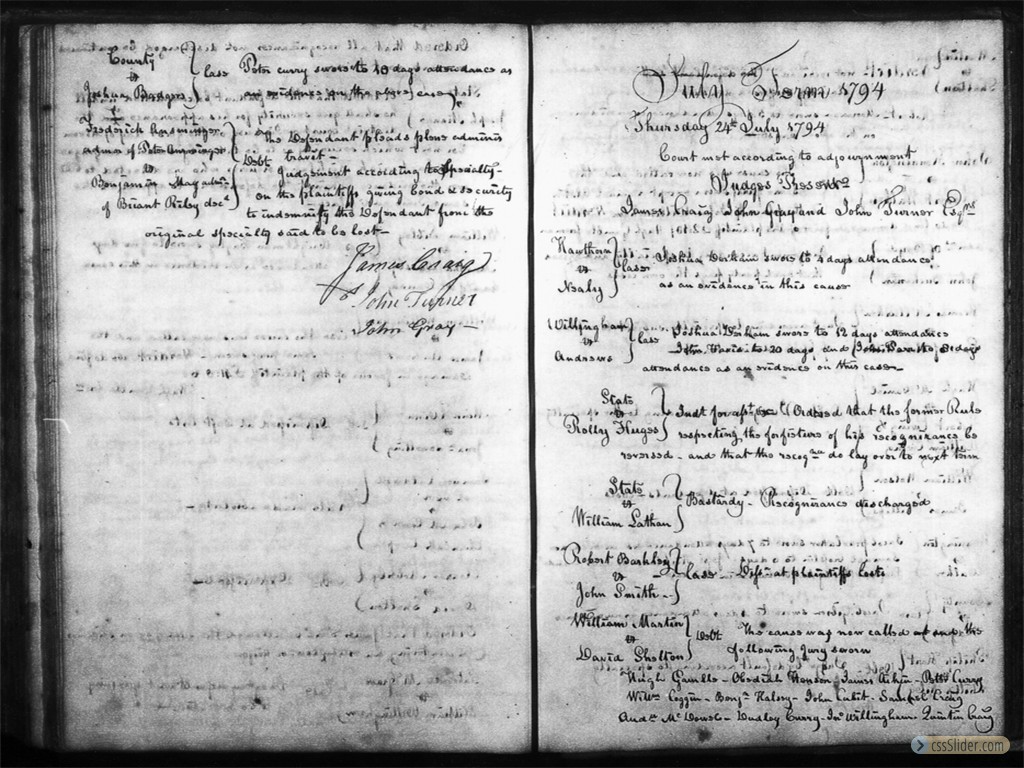 County
vs
Joshua Badgers
Case Peter Curry swore to 10 days attendance as
an evidence on the
Frederick
admrs of Peter
vs
Benjamin
of Briant Riley decd
Debt
The Defendant pleads plene adminis
travit -
Judgement according to Specialty -
on the plaintiffs giving bond & security
to indemnify the Defendant from the
original specialty said to be lost -
James Craig
John Turner
John Gray -
July Term 1794
Thursday 24th July 1794
Court met according to adjournment
Judges Present
James Craig John Gray and John Turner Esqrs
Hawthorn
vs
Nealy
Case
Joshua swore to 4 days attendance
as an evidence in this cause
Willingham
vs
Andrews
Case
Joshua swore to 12 days attendance
John to 20 days and John 8 days
attendance as an evidence on this case -
State
vs
Rolly Huges
Indt for Ordered that the former Rule
respecting the forfieture of his recognizance be
reversed - and that the recogce do lay over to next term
State
vs
William Lathan
Bastardy - Recognizance discharged
Robert Barkley
vs
John Smith -
Case - at plaintiffs Costs
William Martin
vs
David Shelton
Debt The cause was now called and the
following Jury sworn
Hugh Gamble - Obediah Henson James Aikin - Peter Curry
Willm Coggin - Benjn Halsey - John - Samuel Craig
Andw Mc Dowel - Dudley Curry - Jno Willingham Quintin Craig
cssSlider.com